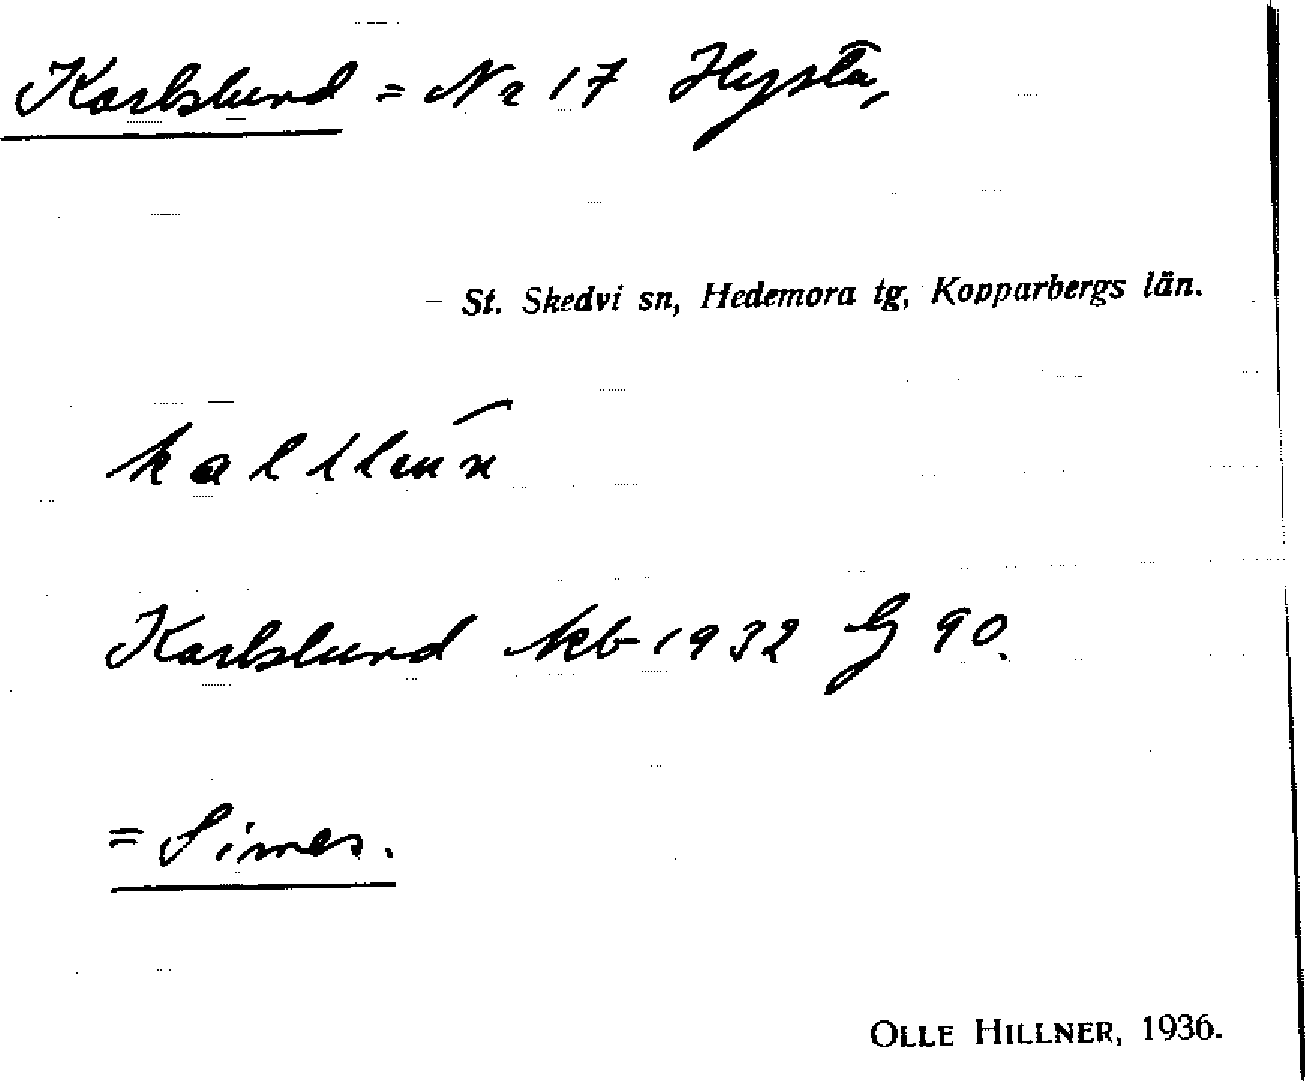 Karlslund = Nr 17 Hysta,
St. Skedvi sn, Hedemora tg, Kopparbergs län.
Karlslund kb 1932 G 90.
= Simes.
OLLE HILLNER, 1936.